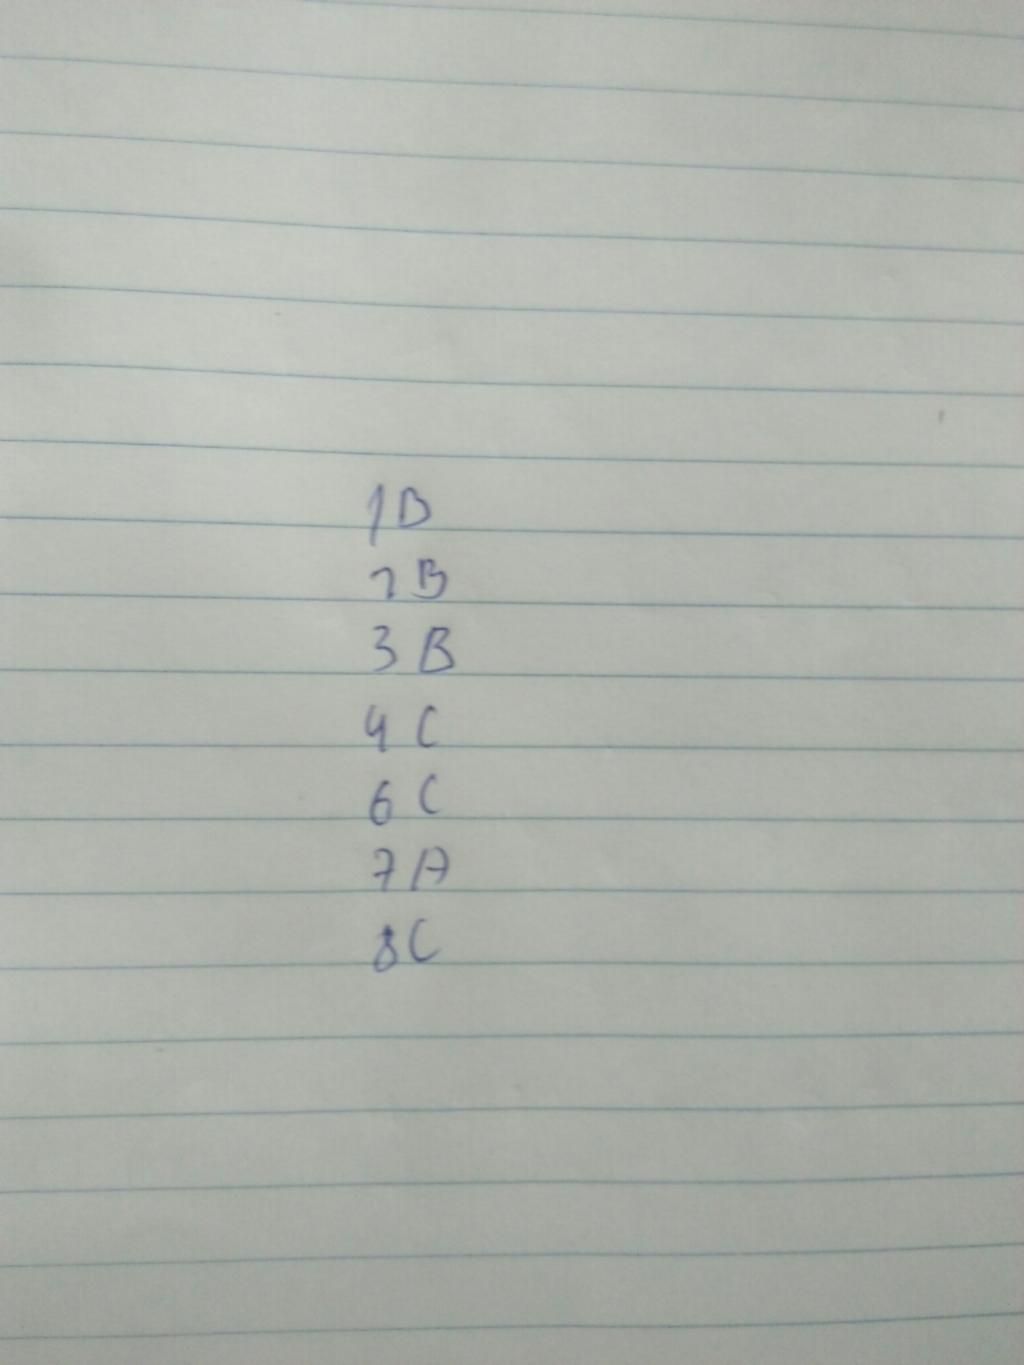 1 D
2 B
3 B
4 C
6 C
7 A
8 C